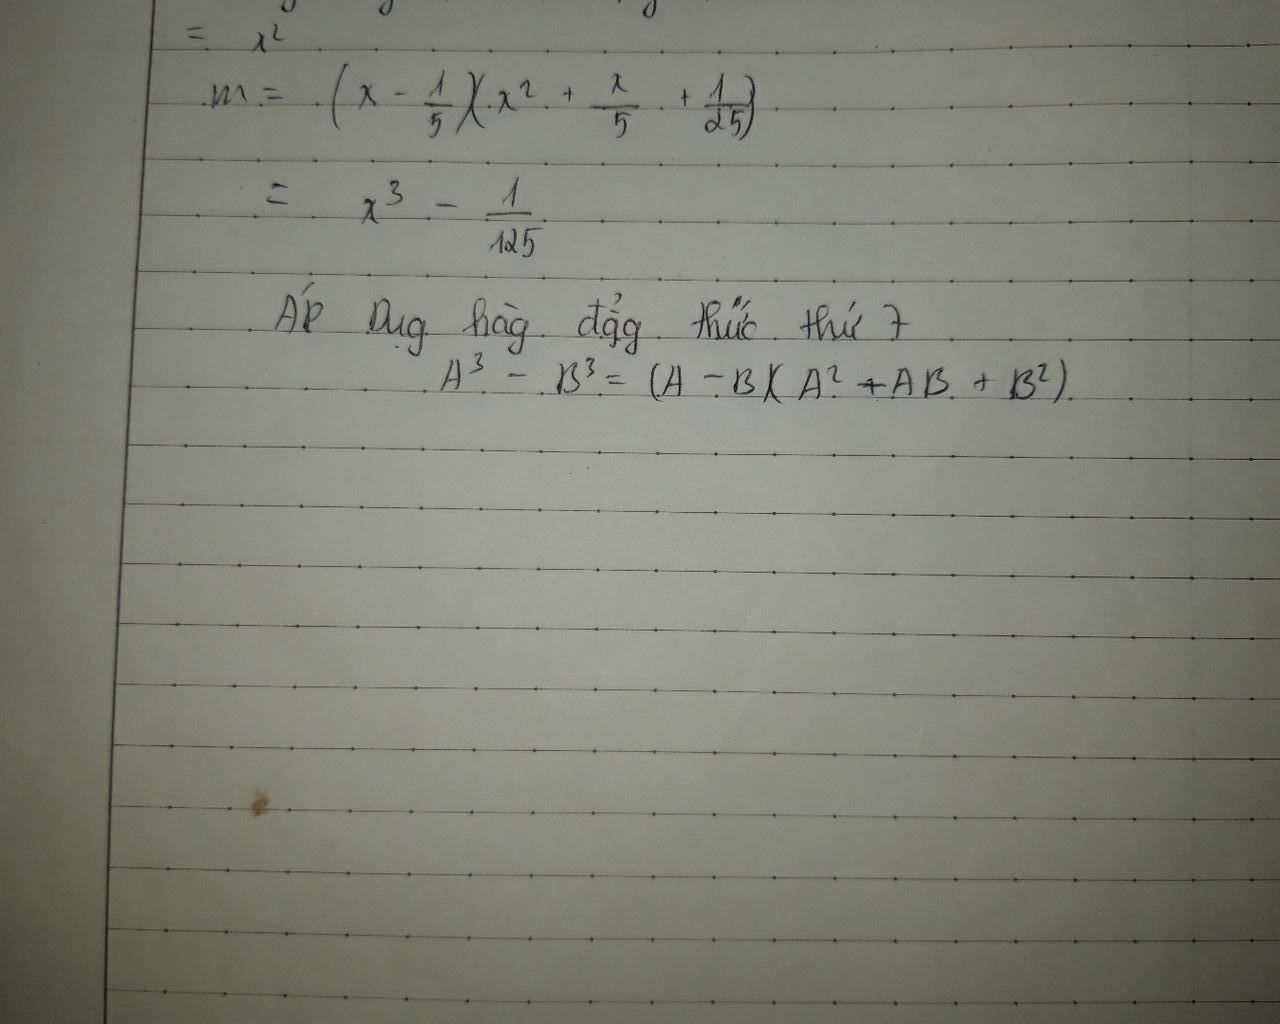 = x²
m = (x - 1/5)(x² + x/5 + 1/25)
= x³ - 1/125
Áp Dụg hàg đẳg thức thứ 7
A³ - B³ = (A - B)(A² + AB + B²).